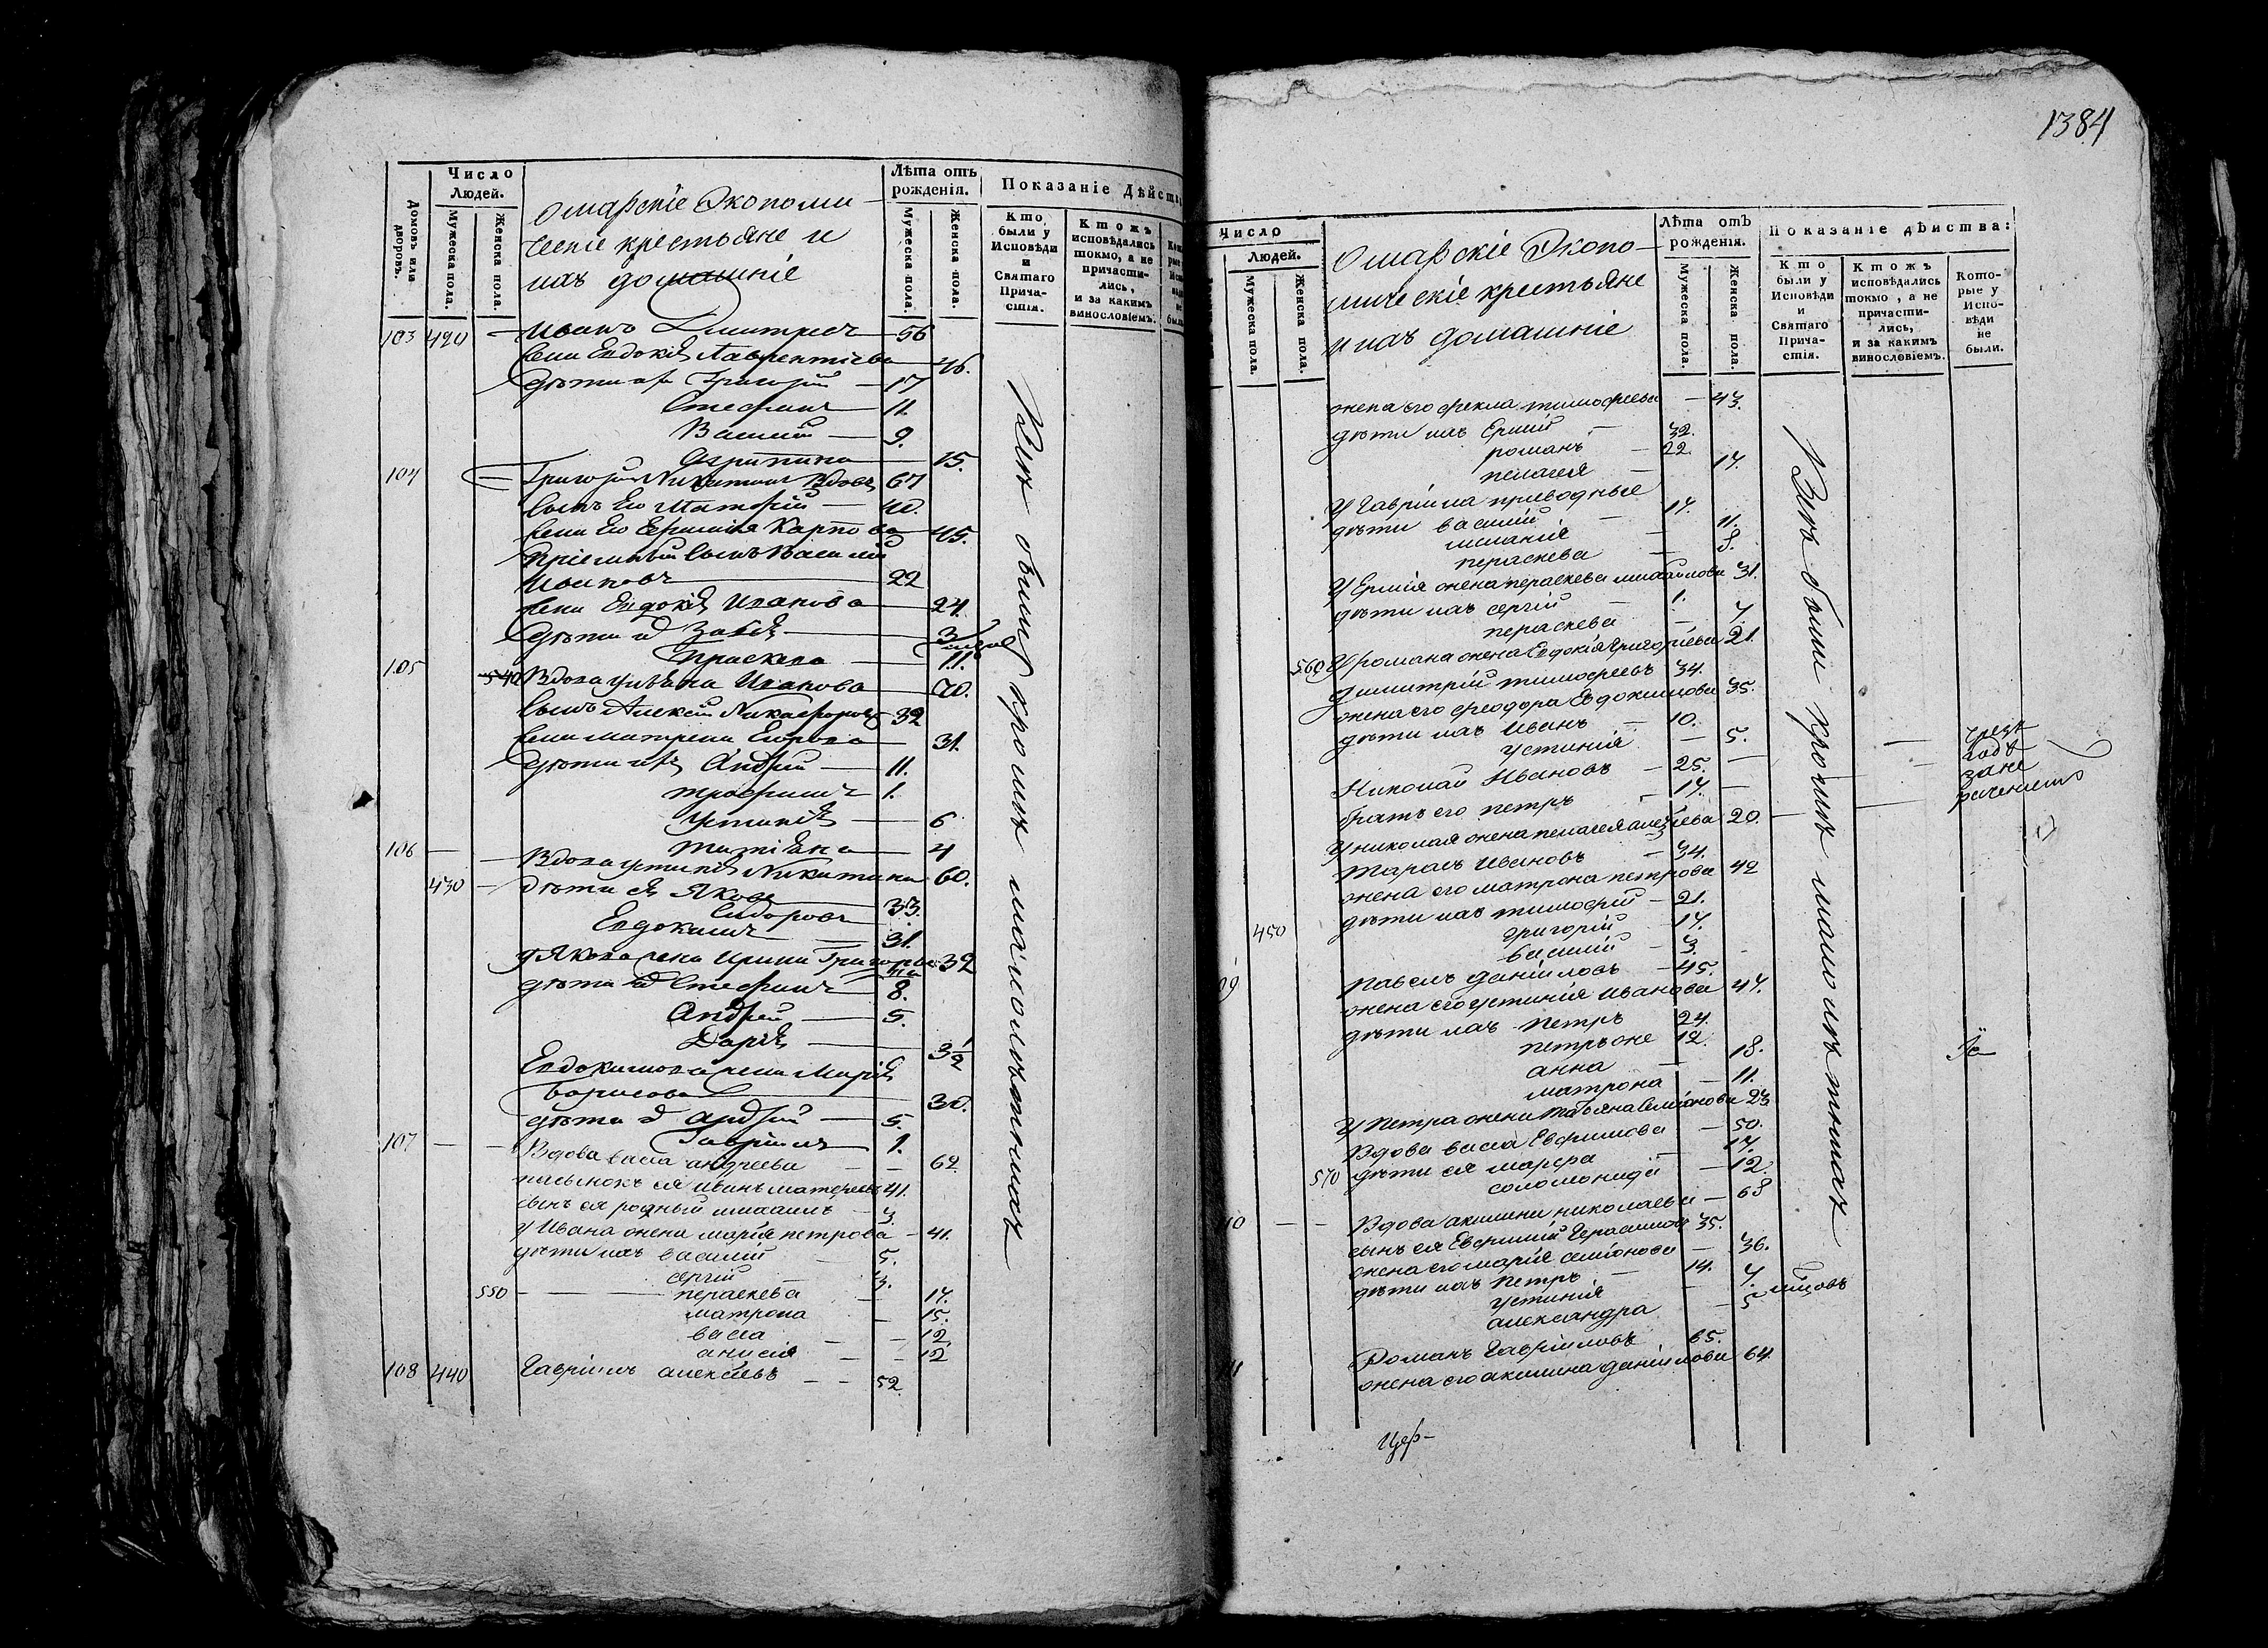 Домовъ или дворовъ.
Число Людей.
Мужеска пола.
Женска пола.
Омарскіе Экономи-
ческіе крестьяне и
ихъ домашніе
Лѣта отъ рожденія.
Мужеска пола.
Женска пола.
Показаніе Дѣйств
Кто были у Исповѣди и Святаго Причастія.
Ктожъ исповѣдались токмо, а не причастились, и за какимъ винословіемъ.
103 420 — Иванъ Дмитріевъ — 56
жена Евдокія Лаврентіева — 46.
дѣти ихъ Григорій — 17
Стефанъ — 11.
Василій — 9.
Агрипина — 15.
104 Григорій Никитинъ Вдовъ 67
сынъ Его Матфей — 40.
жена Его Евгенія Карпова — 45.
Пріемный сынъ Василій
Ивановъ — 22
жена Евдокія Иванова — 24.
дѣти — 3
Праскева — 11.
105 540 Вдова Ульяна Иванова — 70.
сынъ Алексѣй Никифоровъ 32
жена Матрена Егорова — 31.
дѣти ихъ Андрей — 11.
Трофимъ 1.
Устинія — 6
Татіана — 4
106 — — Вдова Устинія Никитина 60.
430 — дѣти ея Яковъ
Сидоровъ 33.
Евдокимъ — 31.
у Якова жена Ирина Григорьева 32
дѣти Стефанъ 8.
Андрей — 5.
Дарія — 3 1/2
Евдокимова жена Марія
Борисова — 30.
дѣти Андрей — 5.
Гавріилъ 1.
107 — — Вдова васса андреева — — 62.
пасынокъ ея иванъ матфеевъ 41.
сынъ ея родный михаилъ — 3.
у Ивана жена марія петрова — 41.
дѣти ихъ василій — 5.
сергій — 3.
550 — — — пераскева — 17.
матрона — 15.
васса — — 12.
анисія — — 12
108 440 Гавріилъ алексѣевъ — — 52.
Всѣ были кромѣ малолѣтныхъ
1384
Число
Людей.
Мужеска пола.
Женска пола.
Омарскіе Эконо-
мическіе крестьяне
и ихъ домашніе
Лѣта отъ рожденія.
Мужеска пола.
Женска пола.
Показаніе дѣиства:
Кто были у Исповѣди и Святаго Причастія.
Ктожъ исповѣдались токмо, а не причастились, и за какимъ винословіемъ.
Которые у Исповѣди не были.
жена его фекла тимофеева — 43.
дѣти ихъ Ермій — 32.
романъ — 22.
пелагея — 17.
у Гавріила приводные
дѣти василій — 14.
меланія — 11.
пераскева — 8.
у Ермія жена пераскева михайлова 31.
дѣти ихъ сергій — 1.
пераскева — 7.
560 у романа жена Евдокія григоріева 21.
димитрій тимофеевъ 34.
жена его феодора Евдокимова 35.
дѣти ихъ Иванъ — 10.
устинія — 5.
Николай Ивановъ — 25. —
братъ его петръ — 17. —
у николая жена пелагея алексѣева 20. —
Тарасъ Ивановъ — 34.
жена его матрона петрова 42
дѣти ихъ тимофей — 21.
450 григорій — 17.
василій — 3.
09 павелъ даніиловъ — 45.
жена его устинія иванова 47.
дѣти ихъ петръ 24.
петръ же 12.
анна — 18.
матрона — 11.
у петра жена татьяна семіонова 23
Вдова васса Евфимова — 50.
570 дѣти ея марфа — 17.
соломонида — 12.
10 — — Вдова акилина николаева — 63
сынъ ея Евфимій Герасимовъ 35.
жена его марія семіонова — 36.
дѣти ихъ петръ — 14.
устинія — 7.
александра — 5
11 Романъ Гавріиловъ 65.
жена его акилина даніилова 64.
Всѣ были кромѣ малолѣтныхъ
Цер-